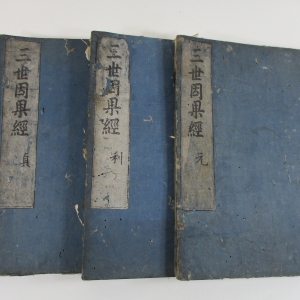 三世因果經
元
三世因果經
利
三世因果經
貞